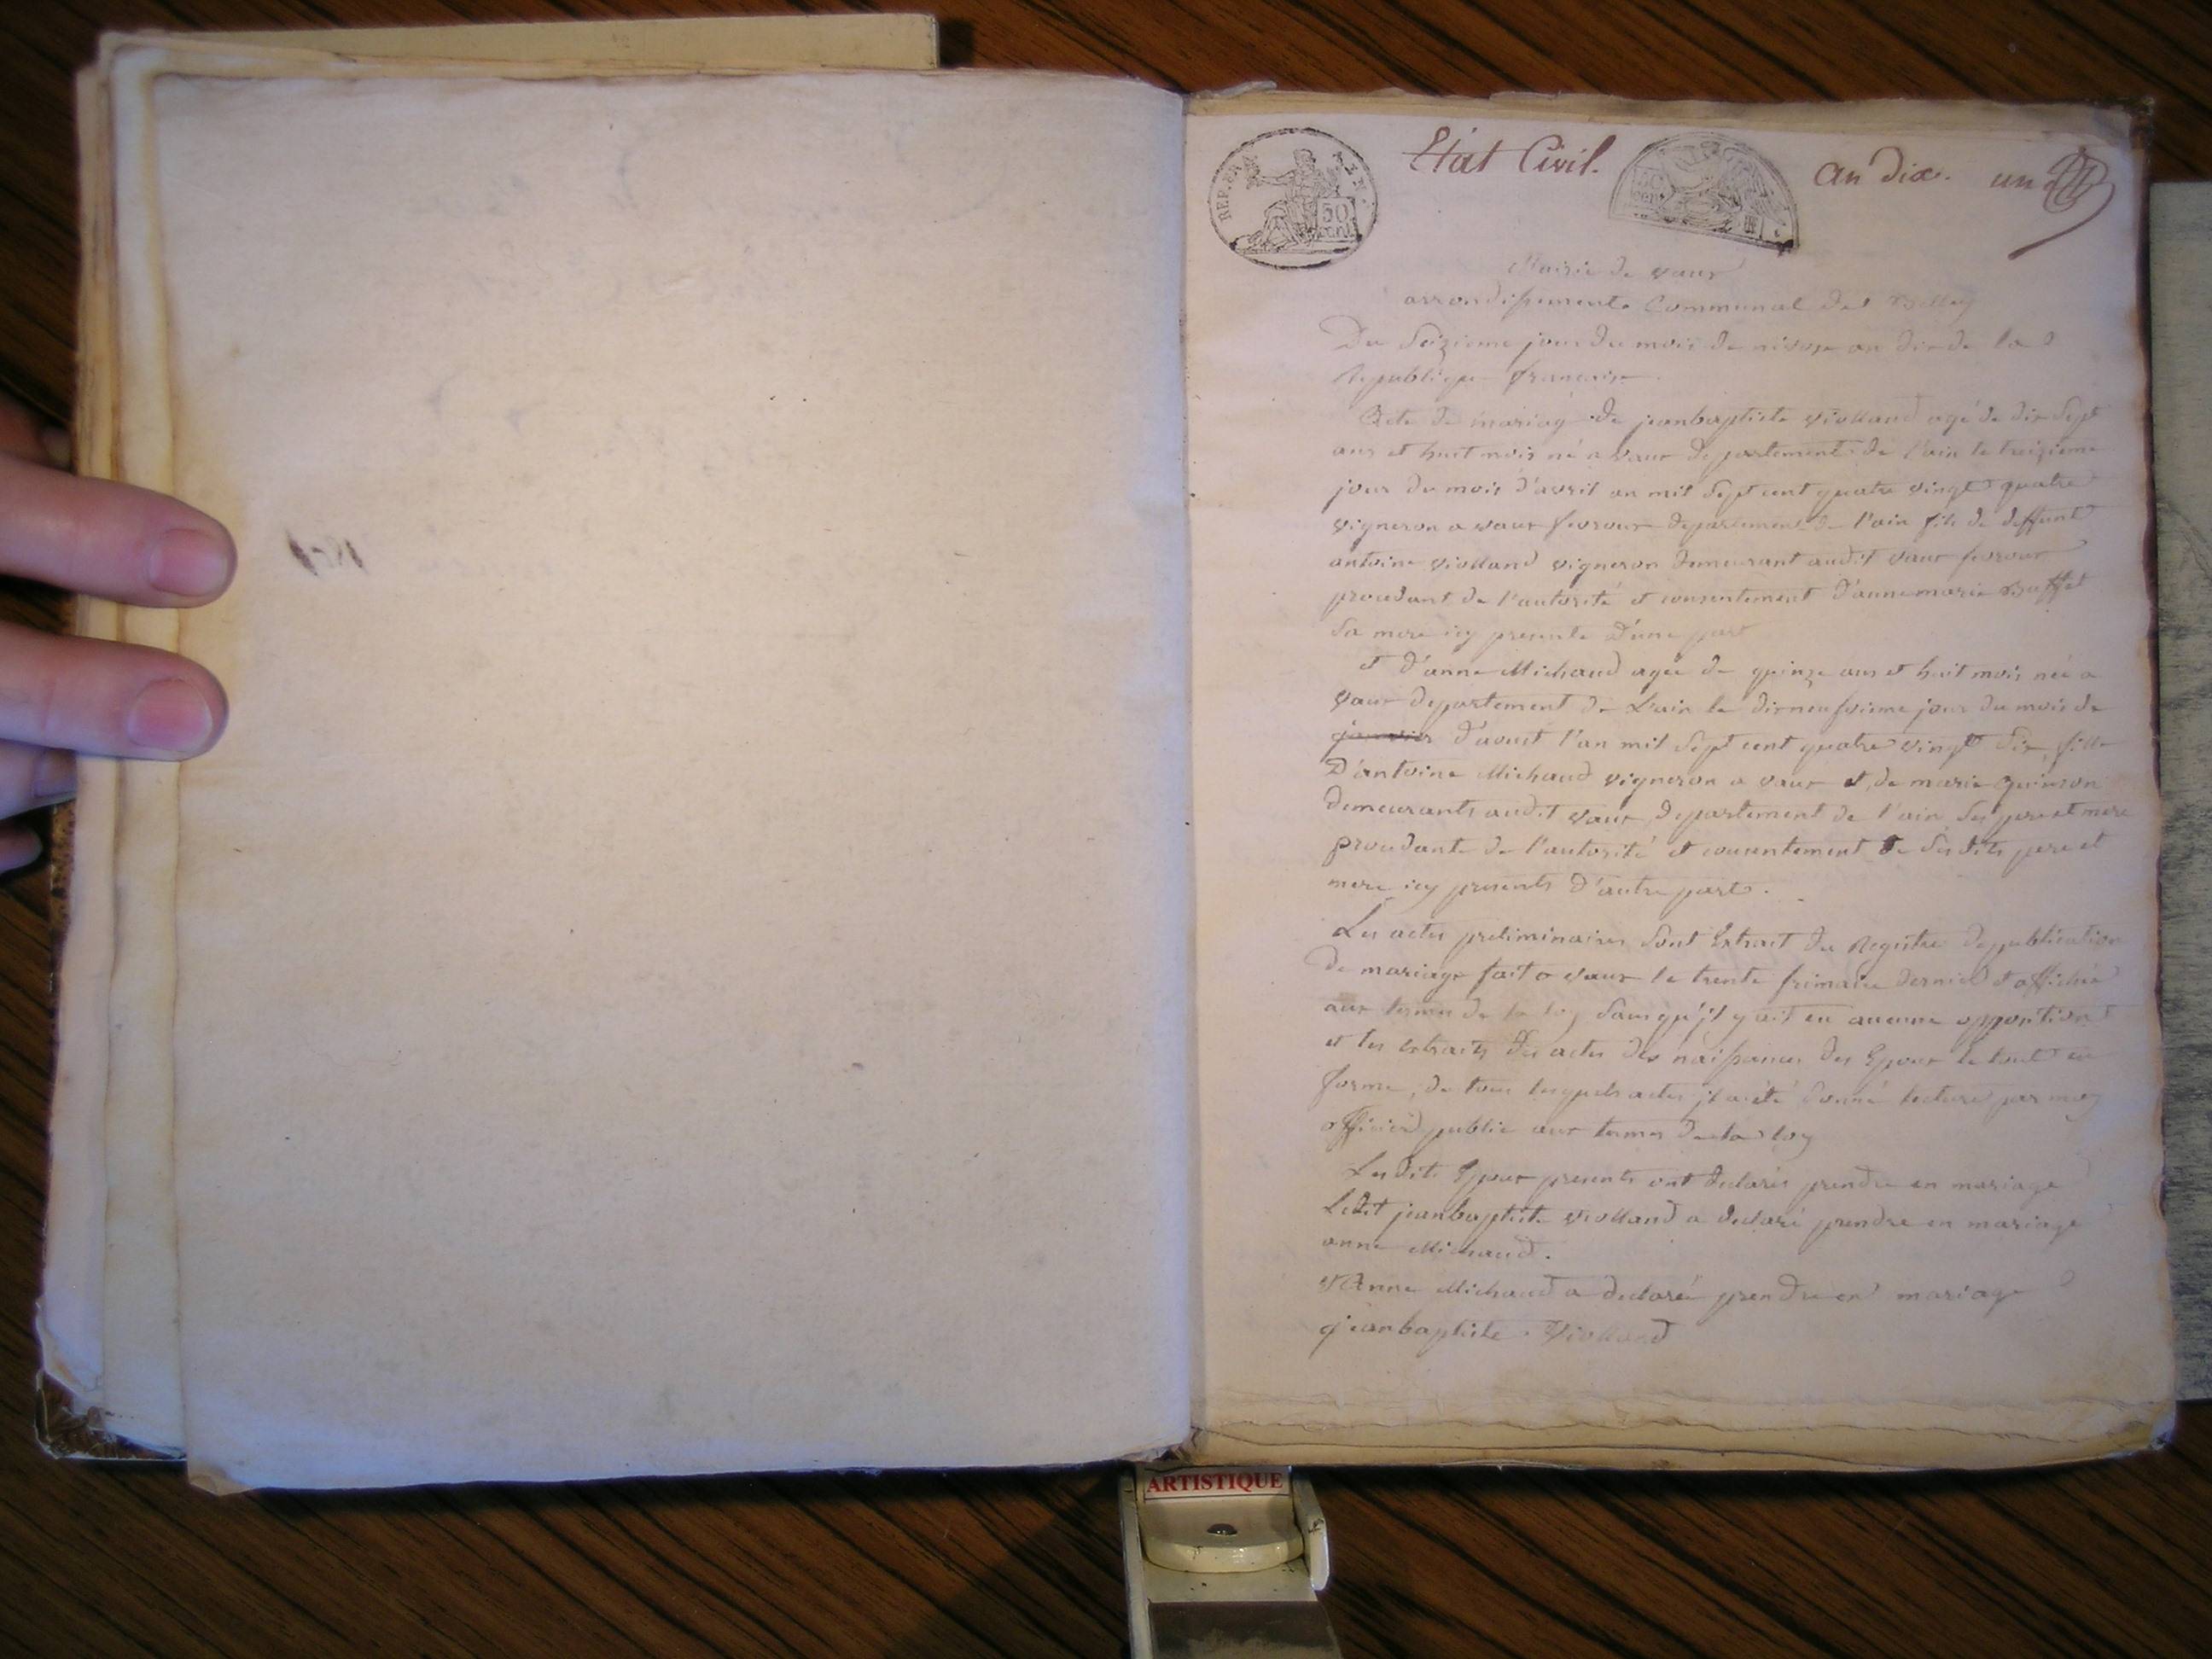 REP. FRA
50
cent.
Etat Civil.
an dix.
un
Mairie de vaux
arrondissement Communal de Belley
Du Seizieme jour du mois de nivose an dix de la
Republique francaise
Acte de mariag de jeanbaptiste violland agé de dix Sept
ans et huit mois né a vaux departement de l'ain le treizieme
jour du mois d'avril an mil Sept cent quatre vingt quatre
vigneron a vaux fevroux departement de l'ain fils de deffunt
antoine violland vigneron demeurant audit vaux fevroux
procedant de l'autorité et consentement d'annemarie Buffet
Sa mere icy presente d'une part
et d'anne Michaud agée de quinze ans et huit mois née a
vaux departement de L'ain le dixneufvieme jour du mois de
janvier d'aoust l'an mil Sept cent quatre vingt Six fille
D'antoine Michaud vigneron a vaux et de marie quinson
demeurants audit vaux departement de l'ain Ses pere et mere
procedante de l'autorité et consentement de Ses dits pere et
mere icy presents d'autre part.
Les actes preliminaires Sont Extrait du Registre de publication
de mariage fait a vaux le trente frimaire dernier et affiché
aux termes de la loy Sans qu'jl y ait eu aucune opposition
et les extraits des actes des naissances des Epoux le tout en
forme, de tous lesquels actes jl a été donné lecture par moy
officier public aux termes de la loy
Les dits Epoux presents ont declarés prendre en mariage
Ledit jeanbaptiste violland a declaré prendre en mariage
anne Michaud.
et Anne Michaud a declaré prendre en mariage
jeanbaptiste Violland
ARTISTIQUE